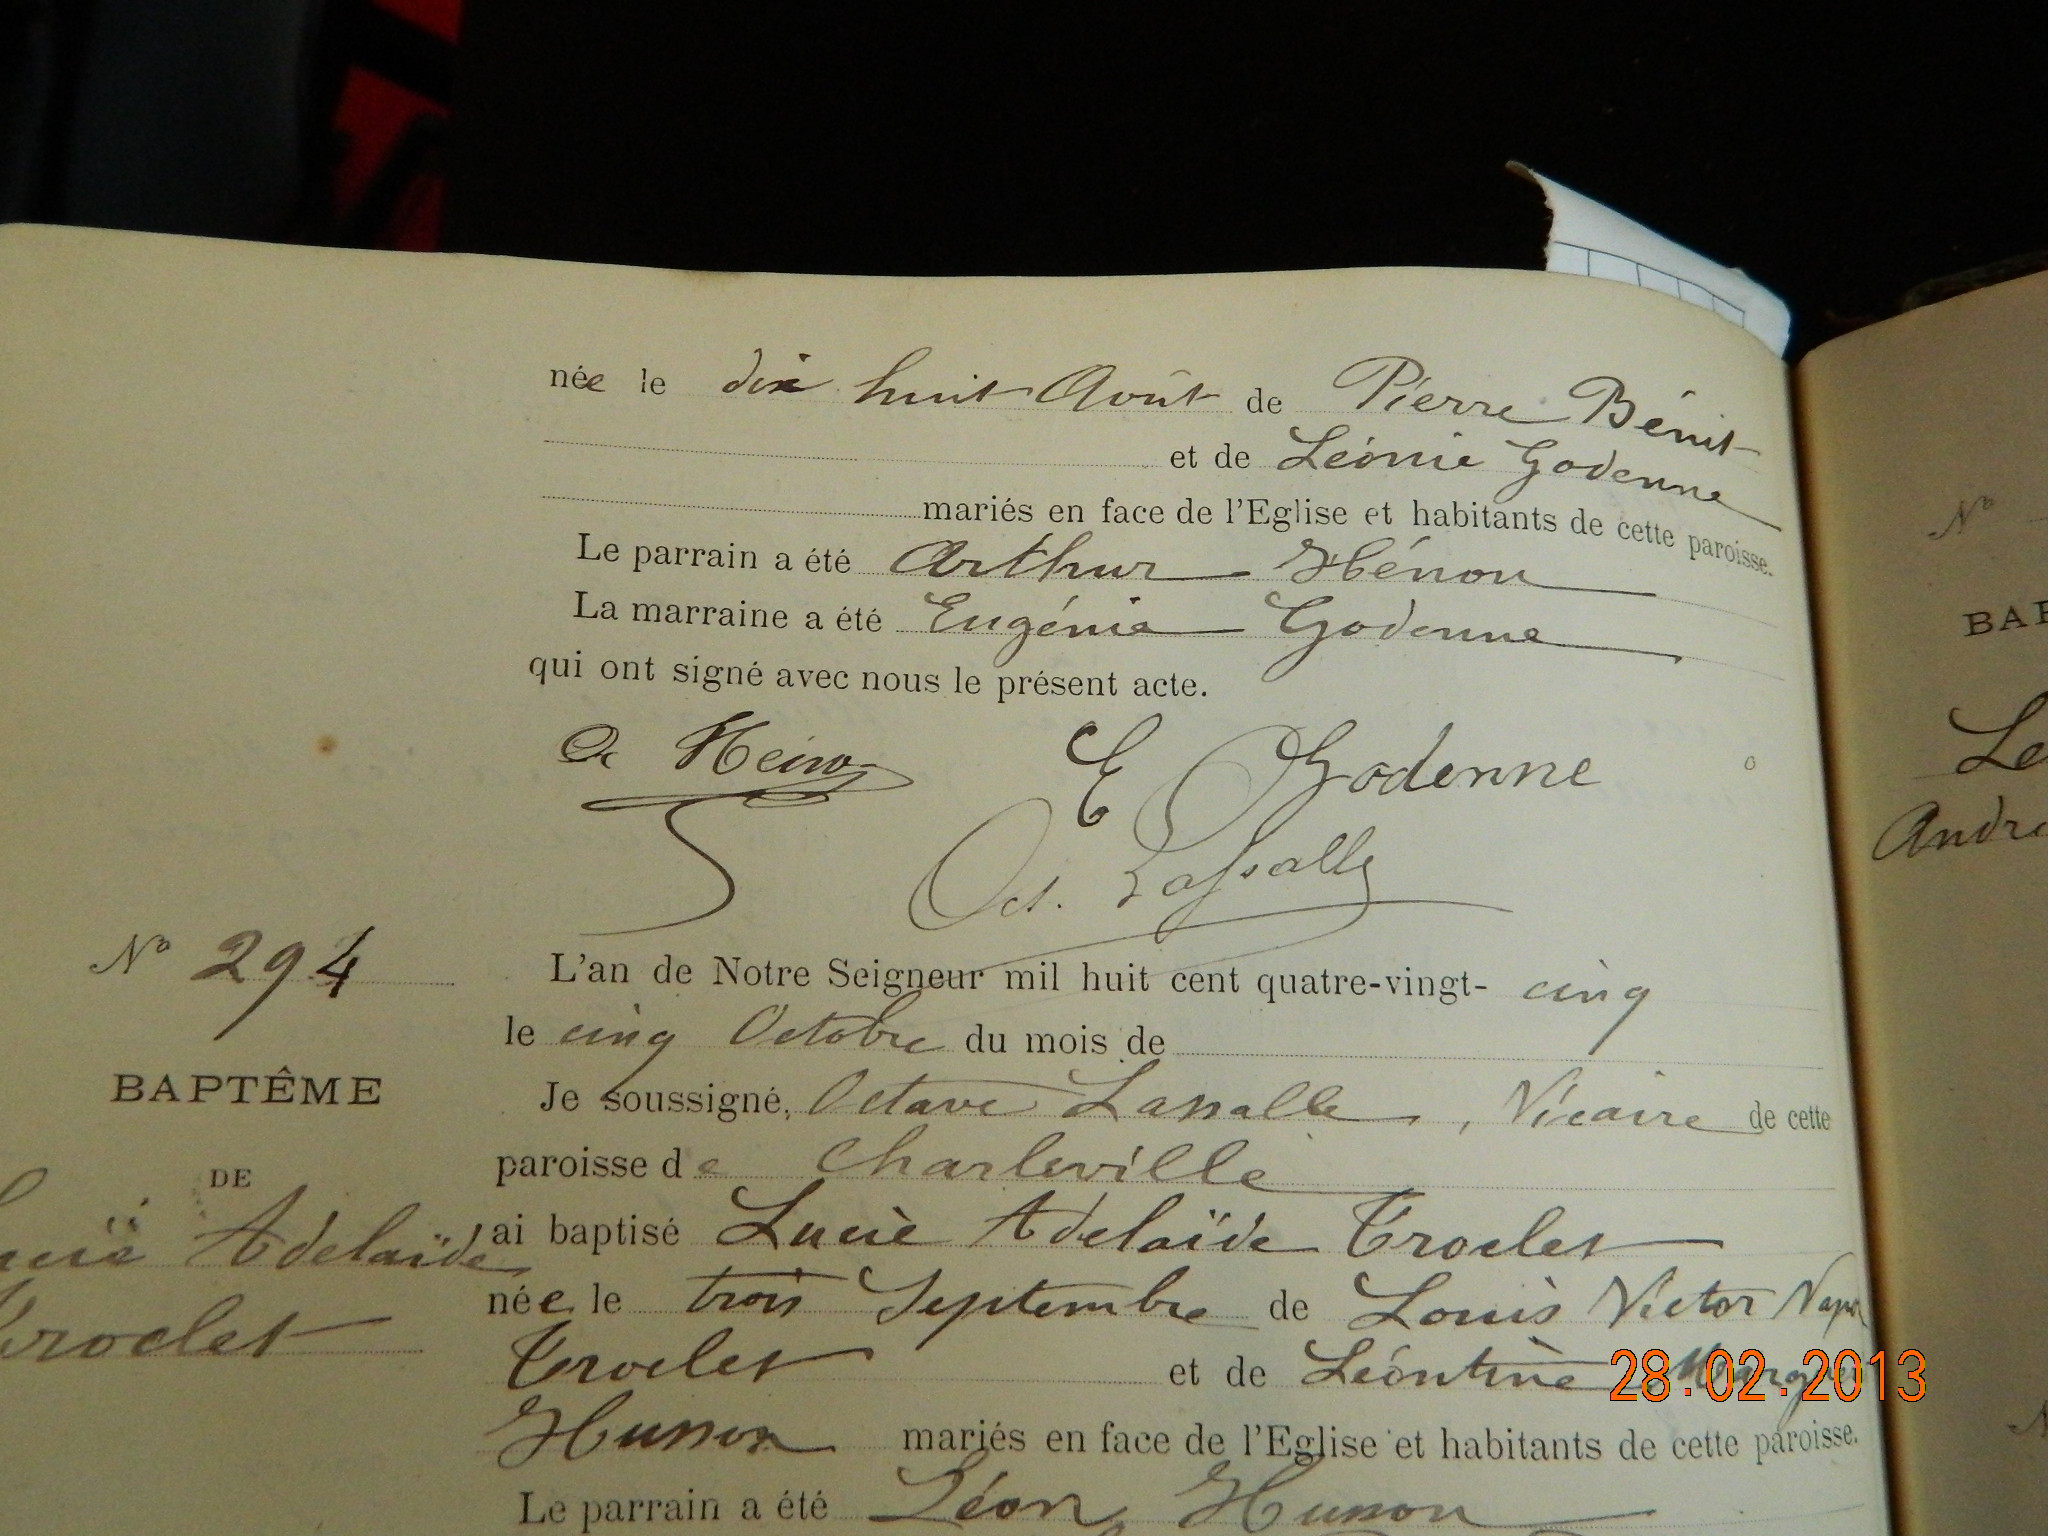 née le dix huit Août de Pierre Bénit
et de Léonie Godenne
mariés en face de l'Eglise et habitants de cette paroisse.
Le parrain a été Arthur Hénon
La marraine a été Eugénie Godenne
qui ont signé avec nous le présent acte.
E Godenne
Oct. Lassalle
Nº 294
BAPTÊME
DE
Lucie Adelaïde
Troclet
L'an de Notre Seigneur mil huit cent quatre-vingt- cinq
le cinq Octobre du mois de
Je soussigné, Octave Lassalle, Vicaire de cette
paroisse de Charleville
ai baptisé Lucie Adelaïde Troclet
née le trois Septembre de Louis Victor Napo
Troclet et de Léontine Margue
Husson mariés en face de l'Eglise et habitants de cette paroisse.
Le parrain a été Léon Husson
Nº
BAP
Le
Andre
28.02.2013